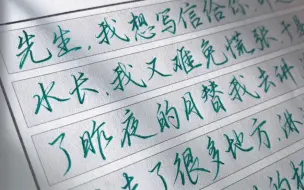 先生，我想写信给你，
水长，我又难免慌张，于
了昨夜的月替我去讲
去了很多地方，淋